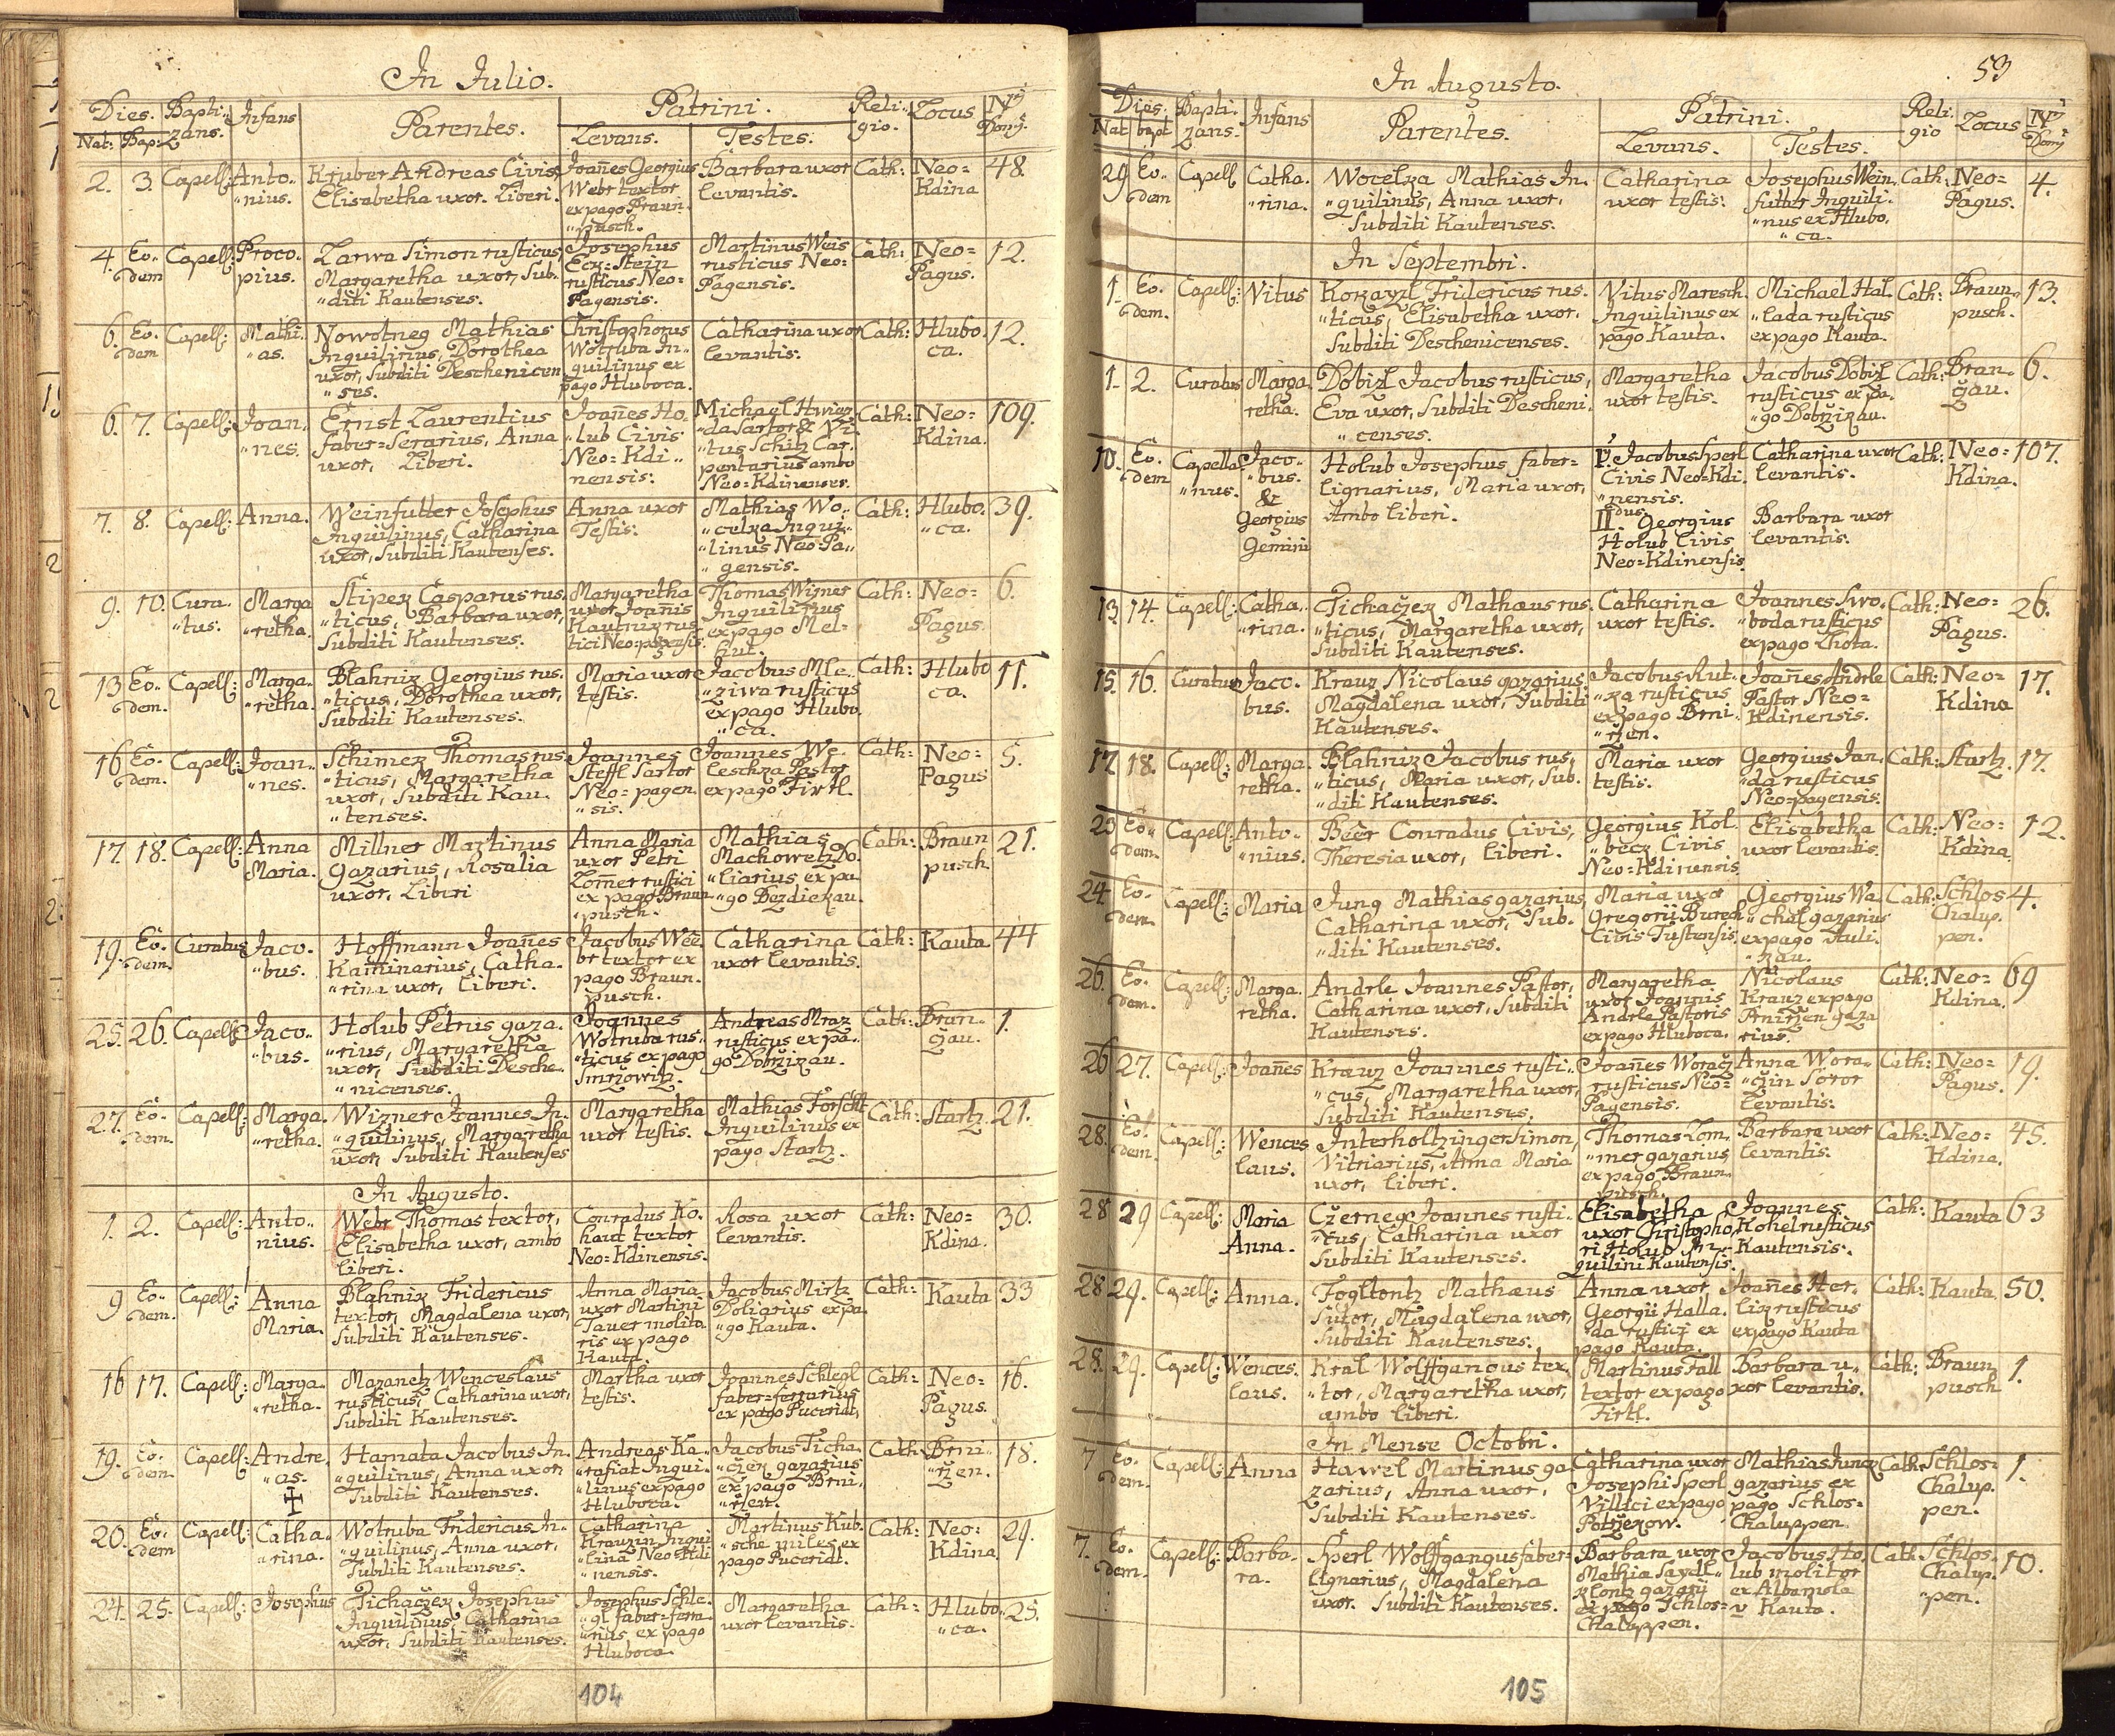 In Julio.
Dies. Bapti- Infans Parentes. Patrini. Reli- Locus Nrus
Nat: Bap: zans. Levans. Testes. gio. Domj.
2. 3. Capell: Anto.. Kruber Andreas Civis, Joañes Georgius Barbara uxor Cath: Neo= 48.
"nius. Elisabetha uxor. Liberi. Webr textor levantis. Kdina
ex pago Braun.
"pusch.
4. Eo.. Capell: Proco. Zarwa Simon rusticus, Josephus Martinus Weis Cath: Neo= 12.
dem pius. Margaretha uxor, Sub. Eck=Stein rusticus Neo= Pagus.
"diti Kautenses. rusticus Neo= Pagensis.
Pagensis.
6. Eo. Capell: Mathi. Nowotneg Mathias Christophorus Catharina uxor Cath: Hlubo. 12.
dem "as. Inquilinus, Dorothea Wotruba In.. levantis. ca.
uxor, Subditi Deschenicen quilinus ex
"ses. pago Hluboca.
6. 7. Capell: Joan. Ernst Laurentius Joañes Ho. Michael Cath: Neo= 109.
"nes. faber=Serarius, Anna "lub Civis "da Sartor & Vi. Kdina.
uxor, Liberi. Neo=Kdi.. "tus Schitz Car.
nensis. pentarius ambo
Neo=Kdinenses.
7. 8. Capell: Anna. Weinfutter Josephus Anna uxor Mathias Wo.. Cath: Hlubo. 39.
Inquilinus, Catharina Testis. "celka Inqui.. "ca.
uxor, Subditi Kautenses. "linus Neo Pa..
"gensis.
9. 10. Cura. Marga Stipek Casparus rus. Margaretha Thomas Wizner Cath: Neo= 6.
"tus. "retha. "ticus, Barbara uxor, uxor Joañis Inquilinus Pagus.
Subditi Kautenses. Kautnik rus. ex pago Mel=
tici Neo=pagensis. hut.
13 Eo.. Capell: Marga. Blahnik Georgius rus. Maria uxor Jacobus Mle. Cath: Hlubo 11.
dem. "retha. "ticus, Dorothea uxor, testis. "ziwa rusticus ca.
Subditi Kautenses. ex pago Hlubo.
"ca.
16 Eo. Capell: Joan.. Schimek Thomas rus. Joannes Joannes We. Cath: Neo= 5.
dem. "nes. "ticus, Margaretha Steffl Sartor leschka Pastor Pagus
uxor, Subditi Kau. Neo=pagen ex pago Firtl.
"tenses. "sis.
17. 18. Capell: Anna Millner Martinus Anna Maria Mathias Cath: Braun 21.
Maria. gazarius, Rosalia uxor Petri Machowetz Do. pusch.
uxor, Liberi Lomer rustici "liarius ex pa
ex pago Braun "go Bezdiekau.
"pusch.
19. Eo. Curatus Jaco. Hoffmann Joañes Jacobus Wee. Catharina Cath: Kauta 44
dem. "bus. Kaminarius, Catha. br textor ex uxor levantis.
"rina uxor, liberi. pago Braun.
pusch.
25. 26. Capell: Jaco.. Holub Petrus gaza. Joannes Andreas Mraz Cath: Brun.. 1.
"bus. "rius, Margaretha Wotruba rus.. rusticus ex pa.. žau.
uxor, Subditi Desche. "ticus ex pago go Dobržikau.
"nicenses. Smržowitz.
27. Eo. Capell: Marga. Wizner Joannes In. Margaretha Mathias Forscht Cath: Startz. 21.
dem. "retha. "quilinus, Margaretha uxor testis. Inquilinus ex
uxor, Subditi Kautenses pago Startz.
In Augusto.
1. 2. Capell: Anto.. Webr Thomas textor, Conradus Ko. Rosa uxor Cath: Neo= 30.
nius. Elisabetha uxor, ambo haut textor levantis. Kdina.
liberi. Neo=Kdinensis.
9 Eo.. Capell: Anna Blahnik Fridericus Anna Maria Jacobus Mirtz Cath: Kauta 33
dem. Maria. textor, Magdalena uxor, uxor Martini Doliarius ex pa.
Subditi Kautenses. Tauer molita "go Kauta.
ris ex pago
Kauta.
16 17. Capell: Marga.. Mazanetz Wenceslaus Martha uxor Joannes Schlegl Cath: Neo= 16.
"retha. rusticus, Catharina uxor, testis. faber=ferrarius Pagus.
Subditi Kautenses. ex pago Puceridt,
19. Eo. Capell: Andre. Hamata Jacobus In. Andreas Ka.. Jacobus Ticha. Cath: Brni.. 18.
dem. "as. "quilinus, Anna uxor, "rafiat Inqui. "ček gazarius "ržen.
Subditi Kautenses. "linus ex pago ex pago Brni,
Hluboca. "ržen.
20. Eo. Capell: Catha.. Wotruba Fridericus In. Catharina Martinus Kub. Cath: Neo= 29.
dem "rina. "quilinus, Anna uxor, Krauzin Inqui "sche miles ex Kdina.
Subditi Kautenses. "lina Neo Kdi pago Puceridt.
"nensis.
24. 25. Capell: Josephus Tichaček Josephus Josephus Schle. Margaretha Cath: Hlubo. 25.
Inquilinus, Catharina "gl faber=ferra. uxor levantis. "ca.
uxor, Subditi Kautenses. "rius ex pago
Hluboca.
104
53
In Augusto.
Dies. Bapti. Infans Parentes. Patrini. Reli. Locus Nrus
Nat bapt zans. Levans. Testes. gio Domj
29 Eo.. Capell Catha. Wocelka Mathias In. Catharina Josephus Wein. Cath: Neo= 4.
dem "rina. "quilinus, Anna uxor, uxor testis. futter Inquili. Pagus.
Subditi Kautenses. "nus ex Hlubo.
"ca.
In Septembri.
1. Eo. Capell: Vitus Kokayzl Fridericus rus. Vitus Maresch. Michael Hal. Cath: Braun.. 13.
dem. "ticus, Elisabetha uxor, Inquilinus ex "lada rusticus pusch.
Subditi Deschenicenses. pago Kauta. ex pago Kauta.
1. 2. Curatus Marga. Dobizl Jacobus rusticus, Margaretha Jacobus Dobizl Cath: Brun.. 6.
retha. Eva uxor, Subditi Descheni. uxor testis. rusticus ex pa. žau.
"censes. "go Dobržikau.
10. Eo. Capella. Jaco.. Holub Josephus faber= I. Jacobus Sperl Catharina uxor Cath: Neo= 107.
dem "nus. "bus. lignarius, Maria uxor, Civis Neo=Kdi. levantis. Kdina.
& Ambo liberi. "nensis.
Georgius IIdus. Georgius Barbara uxor
Gemini Holub Civis levantis.
Neo=Kdinensis.
13. 14. Capell: Catha.. Tichaček Mathæus rus. Catharina Joannes Swo. Cath: Neo= 26.
"rina. "ticus, Margaretha uxor, uxor testis. "boda rusticus Pagus.
Subditi Kautenses. ex pago Lhota.
15. 16. Curatus Jaco. Krauz Nicolaus gazarius, Jacobus Rut. Joañes Andrle Cath: Neo= 17.
bus. Magdalena uxor, Subditi "ka rusticus Pastor Neo= Kdina
Kautenses. ex pago Brni. Kdinensis.
"ržen.
17. 18. Capell: Marga. Blahnik Jacobus rus, Maria uxor Georgius Jan. Cath: Startz. 17.
retha. "ticus, Maria uxor, Sub. testis. "da rusticus
"diti Kautenses. Neo=pagensis.
23 Eo.. Capell: Anto.. Beèr Conradus Civis, Georgius Kol. Elisabetha Cath: Neo= 12.
dem. "nius. Theresia uxor, liberi. "beck Civis uxor levantis. Kdina.
Neo=Kdinensis.
24 Eo. Capell: Maria Jung Mathias gazarius, Maria uxor Georgius Wa. Cath: Schlos 4.
dem. Catharina uxor, Sub. Gregorii Buresch "chal gazarius Chalup.
"diti Kautenses. Civis Tustensis. ex pago Auli. pen.
"kau.
26. Eo. Capell: Marga. Andrle Joannes Pastor, Margaretha Nicolaus Cath: Neo= 69
dem. retha. Catharina uxor, Subditi uxor Joannis Krauz ex pago Kdina.
Kautenses. Andrle Pastoris Prniržen gaza
ex pago Hluboca. rius.
26 27. Capell: Joañes Krauz Joannes rusti.. Joañes Woracž Anna Wora.. Cath: Neo= 19.
"cus, Margaretha uxor, rusticus Neo= "cžin Soror Pagus.
Subditi Kautenses. Pagensis. Levantis:
28. Eo. Capell: Wences Interholtzinger Simon, Thomas Lom. Barbara uxor Cath: Neo= 45.
dem. laus. Vitriarius, Anna Maria "mer gazarius levantis. Kdina.
uxor, liberi. ex pago Braun..
pusch.
28 29 Capell: Maria Cžerney Joannes rusti.. Elisabetha Joannes Cath: Kauta 63
Anna. "cus, Catharina uxor uxor Christopho Kohel rusticus
Subditi Kautenses. ri Holub In= Kautensis.
quilini Kautensis.
28 29. Capell: Anna. Fogltontz Mathæus Anna uxor Joañes Her. Cath: Kauta. 50.
Sutor, Magdalena uxor, Georgii Halla. lik rusticus
Subditi Kautenses. da rustici ex ex pago Kauta
pago Kauta.
28. 29. Capell: Wences. Kral Wolffgangus tex. Martinus Fall Barbara u.. Cath: Braun 1.
laus. "tor, Margaretha uxor, textor ex pago xor levantis. pusch.
ambo liberi. Firtl.
In Mense Octobri.
7 Eo. Capell: Anna Hawel Martinus ga Catharina uxor Mathias Jung Cath: Schlos= 1.
dem. zarius, Anna uxor, Josephi Sperl gazarius ex Chalup.
Subditi Kautenses. Villici ex pago pago Schlos= pen.
Potržekow. Chaluppen.
7. Eo. Capell: Barba. Sperl Wolffgangus faber= Barbara uxor Jacobus Ho. Cath: Schlos.. 10.
dem. ra. lignarius, Magdalena Mathia Saydl.. lub molitor Chalup.
uxor. Subditi Kautenses. klontz gazarij ex Albamola "pen.
ex pago Schlos= v Kauta.
Chaluppen.
105